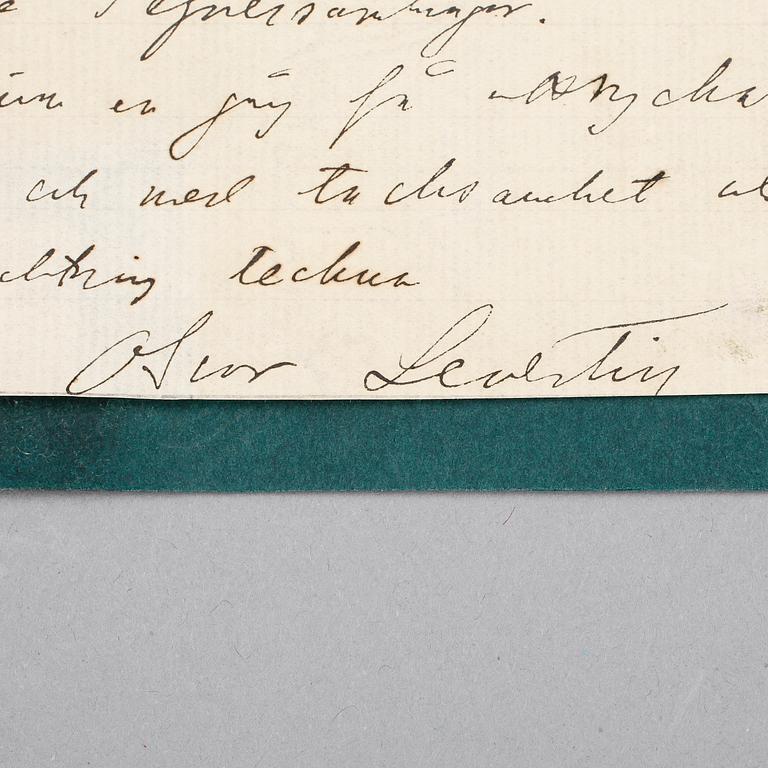 Tegnérsamlingar.
en gång få uttrycka
och med tacksamhet
aktning tecknar
Oscar Levertin